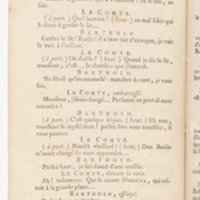 soir.
LE COMTE.
(à part.) Quel homme ! (haut.) un mal subit qui
le force à garder le lit...
BARTHOLO.
Garder le lit ! Basile ! Il a bien fait d'envoyer, je vais
le voir à l'instant.
LE COMTE.
(à part.) Oh diable ! (haut.) Quand je dis le lit,
Monsieur, c'est... la chambre que j'entends.
BARTHOLO.
Ne fût-il qu'incommodé ; marchez devant, je vous
suis.
LE COMTE, embarrassé.
Monsieur, j'étais chargé... Personne ne peut-il nous
entendre ?
BARTHOLO.
(à part.) C'est quelque fripon. (haut.) Eh non,
Monsieur le mystérieux ! parlez sans vous troubler, si
vous pouvez.
LE COMTE.
(à part.) Maudit vieillard ! (haut.) Don Basile
m'avait chargé de vous apprendre...
BARTHOLO.
Parlez haut, je suis sourd d'une oreille.
LE COMTE, élevant la voix.
Ah ! volontiers. Que le comte Almaviva, qui res-
tait à la grande place...
BARTHOLO, effrayé.